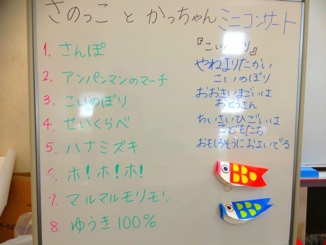 さのっこ と かっちゃん ミニコンサート
1. さんぽ
2. アンパンマンのマーチ
3. こいのぼり
4. せいくらべ
5. ハナミズキ
6. ホ！ホ！ホ！
7. マルマルモリモリ
8. ゆうき100％
『こいのぼり』
やねよりたかい
こいのぼり
おおきいまごいは
おとうさん
ちいさいひごいは
こどもたち
おもしろそうにおよいでる